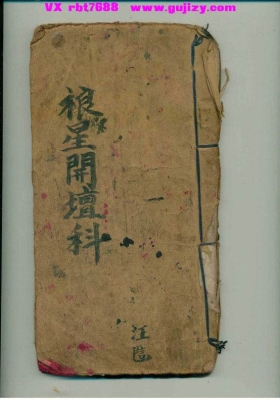 VX rbt7688  www.gujizy.com
星開壇科
汪